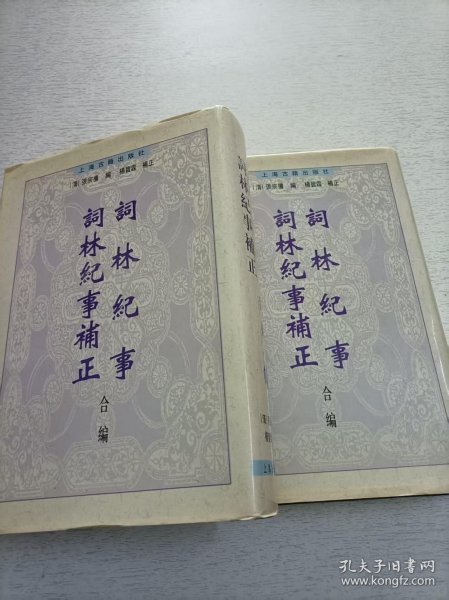 上海古籍出版社
〔清〕張宗橚 編 楊寶霖 補正
詞林紀事
詞林紀事補正
合編
詞林紀事補正
上海古籍出版社
〔清〕張宗橚 編 楊寶霖 補正
詞林紀事
詞林紀事補正
合編
孔夫子旧书网
www.kongfz.com